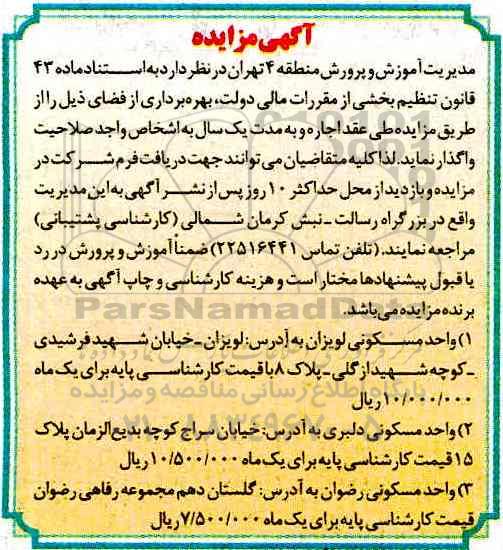 آگهی مزایده
مدیریت آموزش و پرورش منطقه ۴ تهران در نظر دارد به استناد ماده ۴۳
قانون تنظیم بخشی از مقررات مالی دولت، بهره برداری از فضای ذیل را از
طریق مزایده طی عقد اجاره و به مدت یک سال به اشخاص واجد صلاحیت
واگذار نماید. لذا کلیه متقاضیان می توانند جهت دریافت فرم شرکت در
مزایده و بازدید از محل حداکثر ۱۰ روز پس از نشر آگهی به این مدیریت
واقع در بزرگراه رسالت ـ نبش کرمان شمالی (کارشناسی پشتیبانی)
مراجعه نمایند. (تلفن تماس ۲۲۵۱۶۴۴۱) ضمناً آموزش و پرورش در رد
یا قبول پیشنهادها مختار است و هزینه کارشناسی و چاپ آگهی به عهده
برنده مزایده می باشد.
ParsNamadData
۱) واحد مسکونی لویزان به آدرس: لویزان ـ خیابان شهید فرشیدی
ـ کوچه شهید ازگلی ـ پلاک ۸ با قیمت کارشناسی پایه برای یک ماه
۱۰/۰۰۰/۰۰۰ ریال
پایگاه اطلاع رسانی مناقصه و مزایده
۲) واحد مسکونی دلبری به آدرس: خیابان سراج کوچه بدیع الزمان پلاک
۱۵ قیمت کارشناسی پایه برای یک ماه ۱۰/۵۰۰/۰۰۰ ریال
۳) واحد مسکونی رضوان به آدرس: گلستان دهم مجموعه رفاهی رضوان
قیمت کارشناسی پایه برای یک ماه ۷/۵۰۰/۰۰۰ ریال